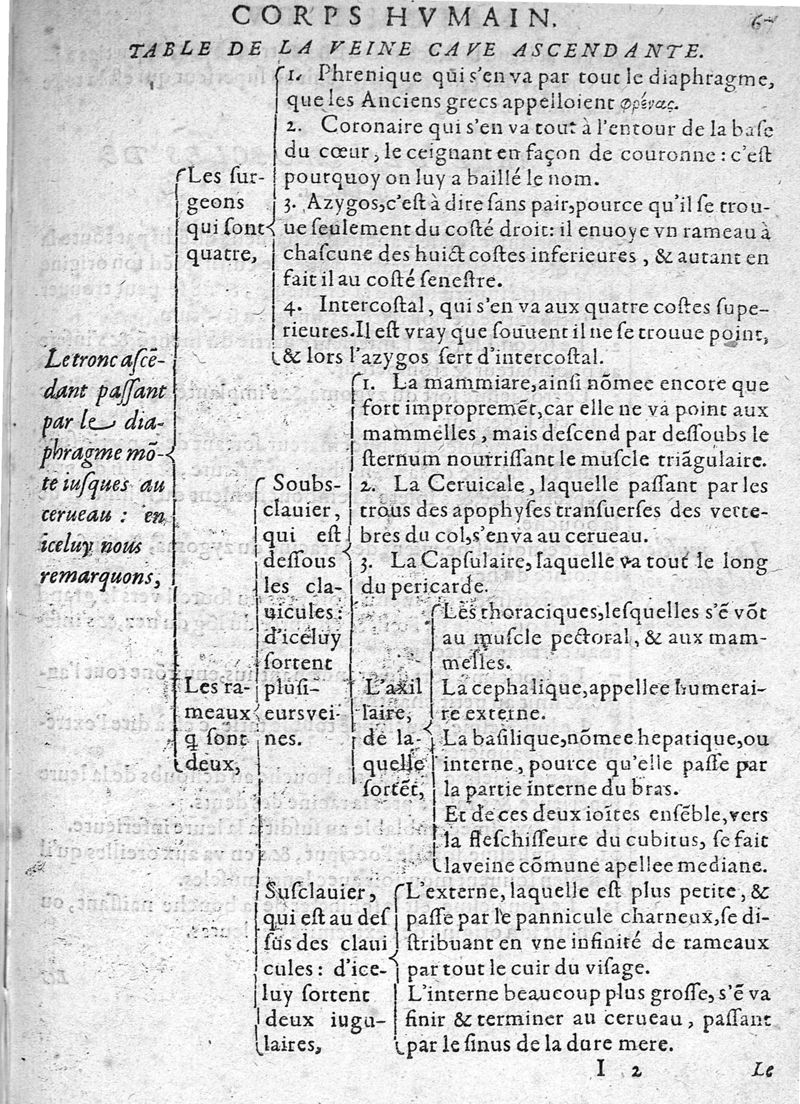 CORPS HVMAIN.
67
TABLE DE LA VEINE CAVE ASCENDANTE.
Le tronc ascē-
dant paſſant
par le dia-
phragme mō-
te iuſques au
cerueau : en
iceluy nous
remarquons,
Les ſur-
geons
qui ſont
quatre,
1. Phrenique qui s'en va par tout le diaphragme,
que les Anciens grecs appelloient φρένας.
2. Coronaire qui s'en va tout à l'entour de la baſe
du cœur, le ceignant en façon de couronne : c'eſt
pourquoy on luy a baillé le nom.
3. Azygos, c'eſt à dire ſans pair, pource qu'il ſe trou-
ue ſeulement du coſté droit: il enuoye vn rameau à
chaſcune des huict coſtes inferieures, & autant en
fait il au coſté ſeneſtre.
4. Intercoſtal, qui s'en va aux quatre coſtes ſupe-
rieures. Il eſt vray que ſouuent il ne ſe trouue point,
& lors l'azygos ſert d'intercoſtal.
Les ra-
meaux
q̃ ſont
deux,
Soubs-
clauier,
qui eſt
deſſous
les cla-
uicules:
d'iceluy
ſortent
pluſi-
eurs vei-
nes.
1. La mammiare, ainſi nōmee encore que
fort impropremēt, car elle ne va point aux
mammelles, mais deſcend par deſſoubs le
ſternum nourriſſant le muſcle triāgulaire.
2. La Ceruicale, laquelle paſſant par les
trous des apophyſes tranſuerſes des verte-
bres du col, s'en va au cerueau.
3. La Capſulaire, laquelle va tout le long
du pericarde.
L'axil
laire,
de la-
quelle
ſortēt,
Les thoraciques, leſquelles s'ē vōt
au muſcle pectoral, & aux mam-
melles.
La cephalique, appellee humerai-
re externe.
La baſilique, nōmee hepatique, ou
interne, pource qu'elle paſſe par
la partie interne du bras.
Et de ces deux ioītes enſēble, vers
la fleſchiſſeure du cubitus, ſe fait
la veine cōmune apellee mediane.
Suſclauier,
qui eſt au deſ
ſus des claui
cules: d'ice-
luy ſortent
deux iugu-
laires,
L'externe, laquelle eſt plus petite, &
paſſe par le pannicule charneux, ſe di-
ſtribuant en vne infinité de rameaux
par tout le cuir du viſage.
L'interne beaucoup plus groſſe, s'ē va
finir & terminer au cerueau, paſſant
par le ſinus de la dure mere.
I 2
Le